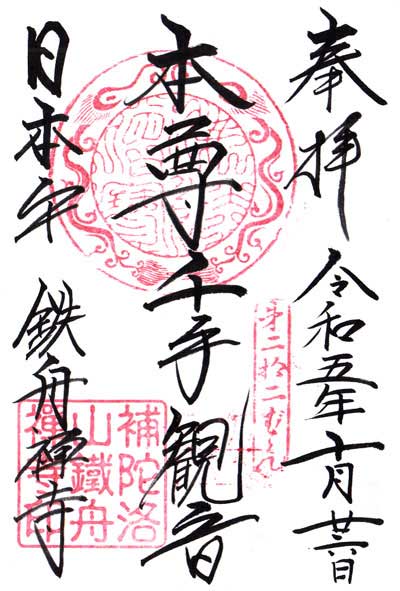 奉拝
令和五年十月廿日
第二拾二
本尊千手観音
日本平
鉄舟禅寺
補陀洛
山鐵舟
禪寺印